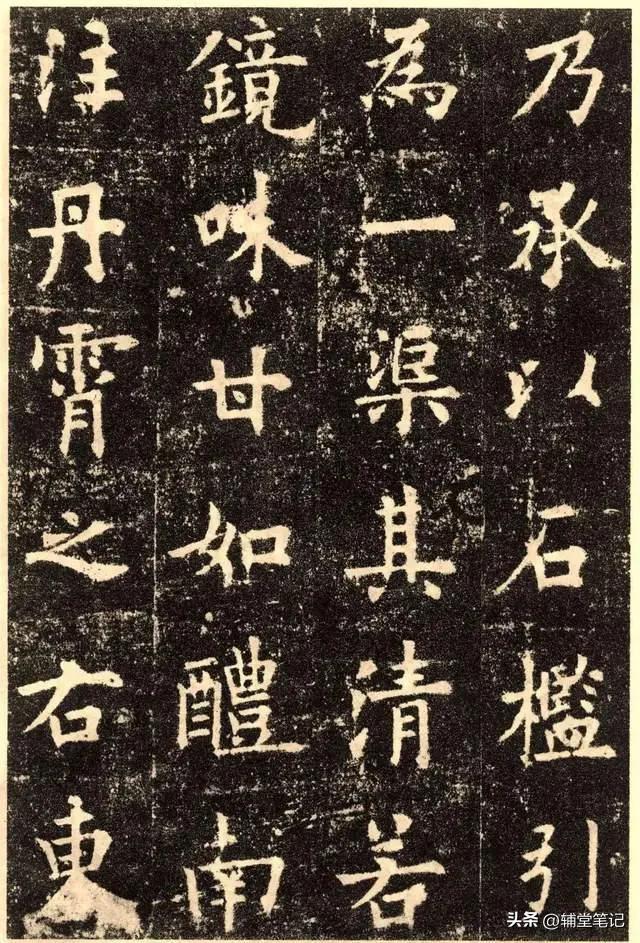 乃承以石檻引
為一渠其清若
鏡味甘如醴南
注丹霄之右東
头条 @辅堂笔记